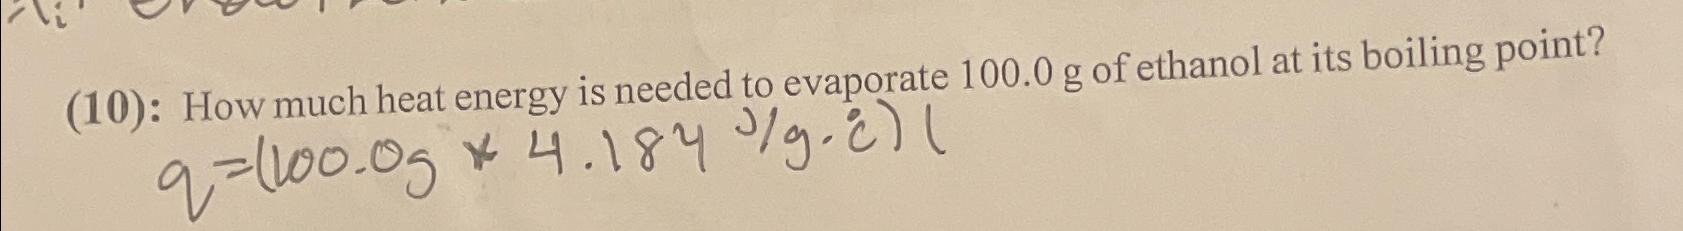 (10): How much heat energy is needed to evaporate 100.0 g of ethanol at its boiling point?
q=(100.0g * 4.184 J/g.°C) (